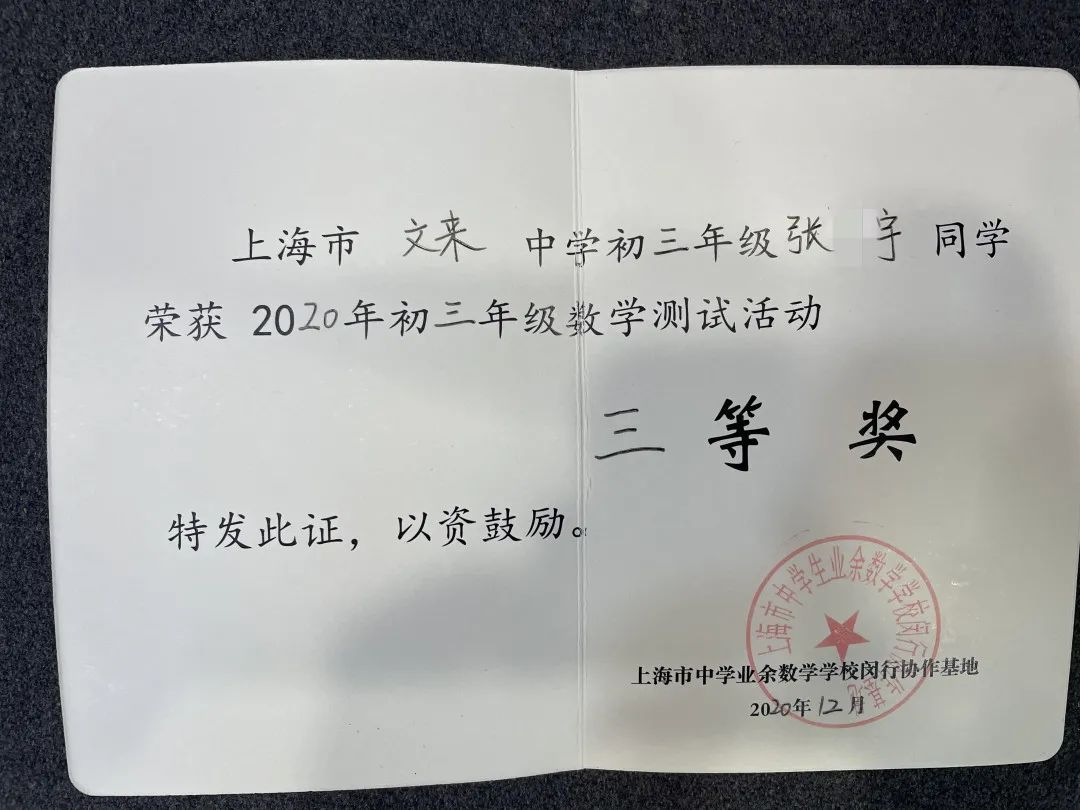 上海市 文来 中学初三年级张 宇 同学
荣获 2020年初三年级数学测试活动
三 等 奖
特发此证，以资鼓励。
上海市中学生业余数学学校闵行
上海市中学业余数学学校闵行协作基地
2020年12月